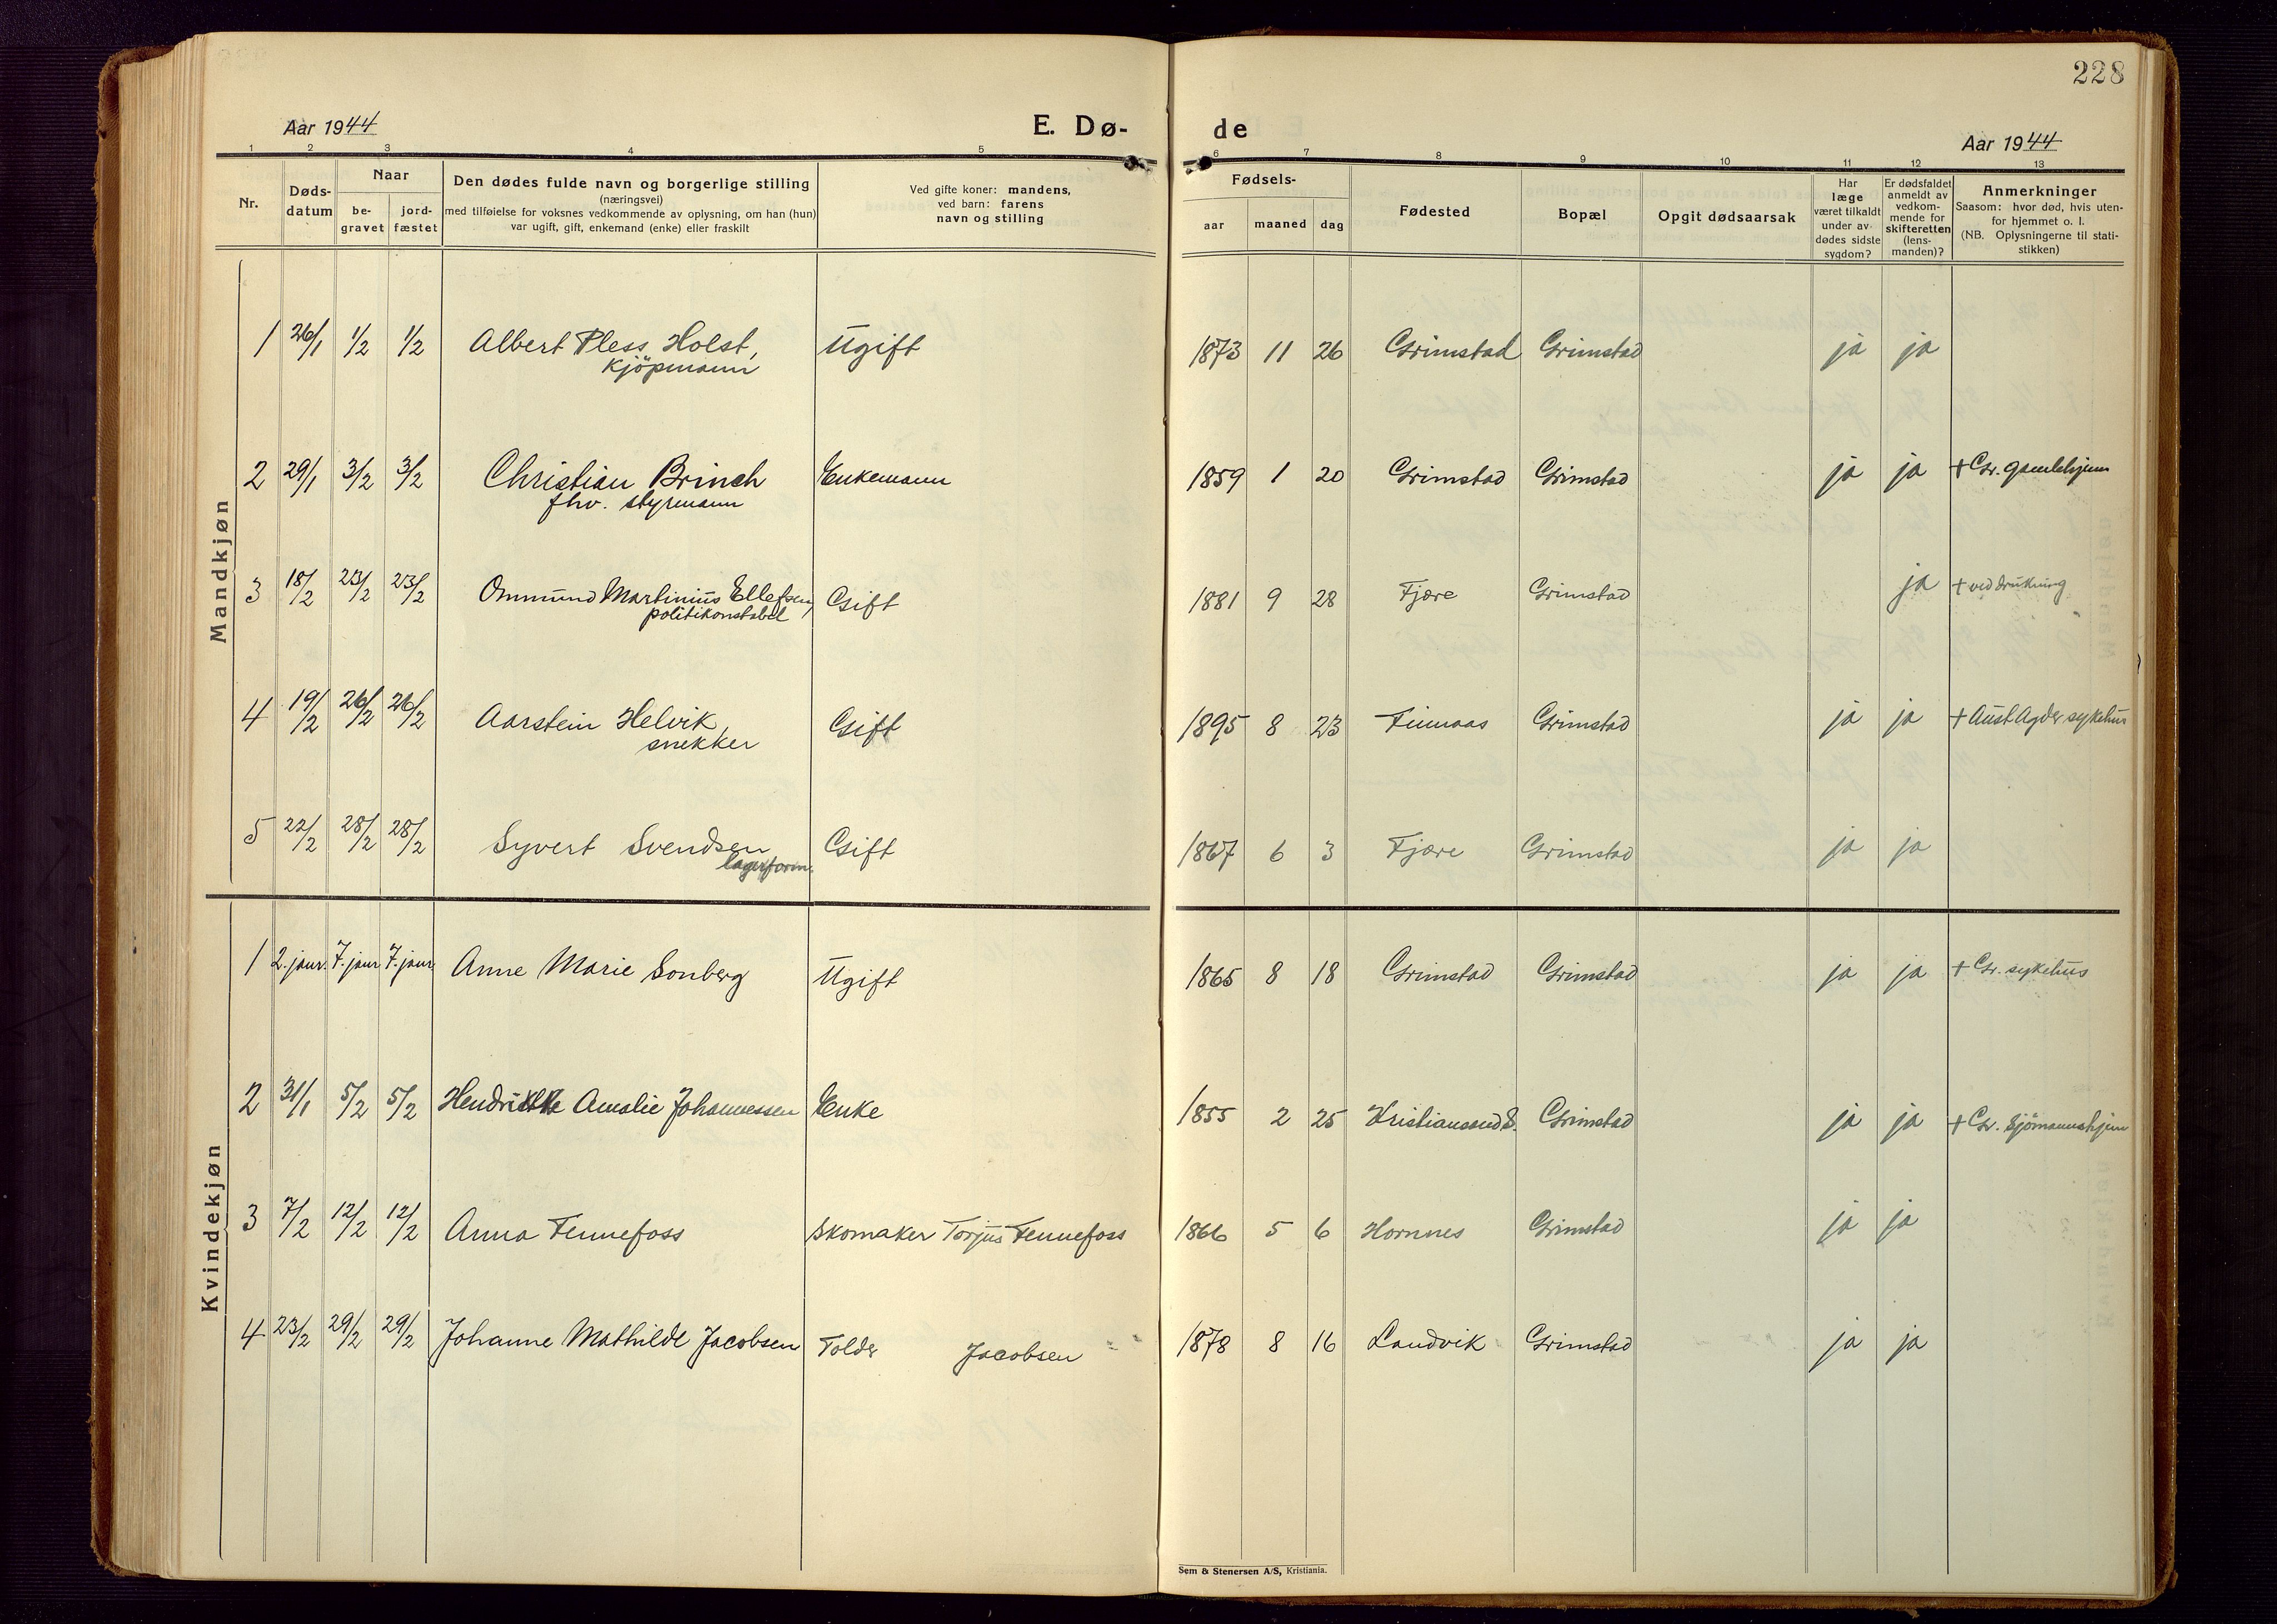 228
Aar 1944
E. Dø-
de
Aar 1944
1 2 3 4 5 6 7 8 9 10 11 12 13
Nr.
Døds-
datum
Naar
be-
gravet
jord-
fæstet
Den dødes fulde navn og borgerlige stilling
(næringsvei)
med tilføielse for voksnes vedkommende av oplysning, om han (hun)
var ugift, gift, enkemand (enke) eller fraskilt
Ved gifte koner: mandens,
ved barn: farens
navn og stilling
Fødsels-
aar maaned dag
Fødested
Bopæl
Opgit dødsaarsak
Har
læge
været tilkaldt
under av-
dødes sidste
sygdom?
Er dødsfaldet
anmeldt av
vedkom-
mende for
skifteretten
(lens-
manden)?
Anmerkninger
Saasom: hvor død, hvis uten-
for hjemmet o. l.
(NB. Oplysningerne til stati-
stikken)
Mandkjøn
1 26/1 1/2 1/2 Albert Pless Holst, Ugift 1873 11 26 Grimstad Grimstad ja ja
Kjöpmann
2 29/1 3/2 3/2 Christian Brinch Enkemann 1859 1 20 Grimstad Grimstad ja ja + Gr. gamlehjem
fhv. styrmann
3 18/2 23/2 23/2 Ommund Martinius Ellefsen, Gift 1881 9 28 Fjære Grimstad ja + ved drukning
politikonstabel
4 19/2 26/2 26/2 Aarstein Helvik, Gift 1895 8 23 Finnaas Grimstad ja ja + Aust Agder sykehus
snekker
5 22/2 28/2 28/2 Syvert Svendsen Gift 1867 6 3 Fjære Grimstad ja ja
lagerform.
Kvindekjøn
1 2. jaur. 7. jaur 7. jaur Anne Marie Sonberg Ugift 1865 8 18 Grimstad Grimstad ja ja + Gr. sykehus
2 31/1 5/2 5/2 Hendrikke Amalie Johannessen Enke 1855 2 25 Kristiansand S. Grimstad ja ja + Gr. Sjömannshjem
3 7/2 12/2 12/2 Anna Fennefoss Skomaker Torjus Fennefoss 1866 5 6 Hornnes Grimstad ja ja
4 23/2 29/2 29/2 Johanne Mathilde Jacobsen Tolder Jacobsen 1878 8 16 Landvik Grimstad ja ja
Sem & Stenersen A/S, Kristiania.